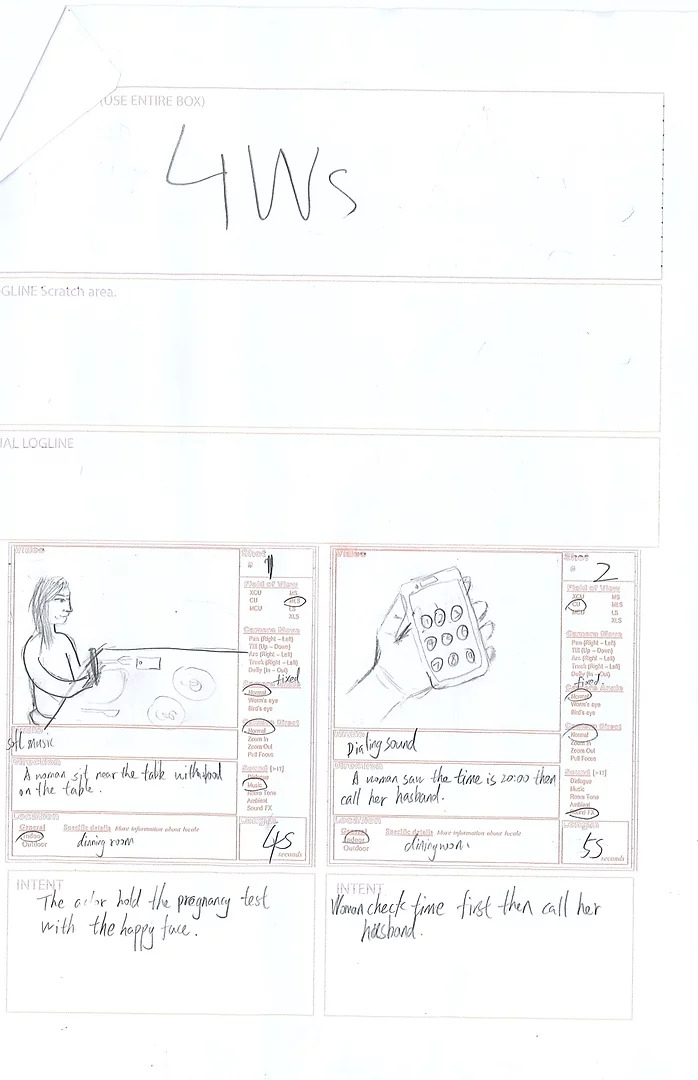 (USE ENTIRE BOX)
4Ws
GLINE Scratch area.
AL LOGLINE
Video
Shot
# 1
Field of View
XCU MS
CU MLS
MCU LS
XLS
Camera Move
Pan (Right – Left)
Tilt (Up – Down)
Arc (Right – Left)
Truck (Right – Left)
Dolly (In – Out)
fixed
Normal
Worm's eye
Bird's eye
Normal
Zoom In
Zoom Out
Pull Focus
soft music
Sound
Dialogue
Music
Room Tone
Ambient
Sound FX
Direction
A woman sit near the table with food
on the table.
Location
General Specific details More information about locale
Indoor
Outdoor
dinning room
Length
4s
seconds
INTENT
The actor hold the pregnancy test
with the happy face.
Video
Shot
# 2
Field of View
XCU MS
CU MLS
MCU LS
XLS
1 2 3
4 5 6
7 8 9
Camera Move
Pan (Right – Left)
Tilt (Up – Down)
Arc (Right – Left)
Truck (Right – Left)
Dolly (In – Out)
fixed.
Camera Angle
Normal
Worm's eye
Bird's eye
Normal
Zoom In
Zoom Out
Pull Focus
Dialing sound
Sound
Dialogue
Music
Room Tone
Ambient
Sound FX
Direction
A woman saw the time is 20:00 then
call her hasband.
Location
General Specific details More information about locale
Indoor
Outdoor
Length
5s
seconds
INTENT
Woman check time first then call her
hasband.